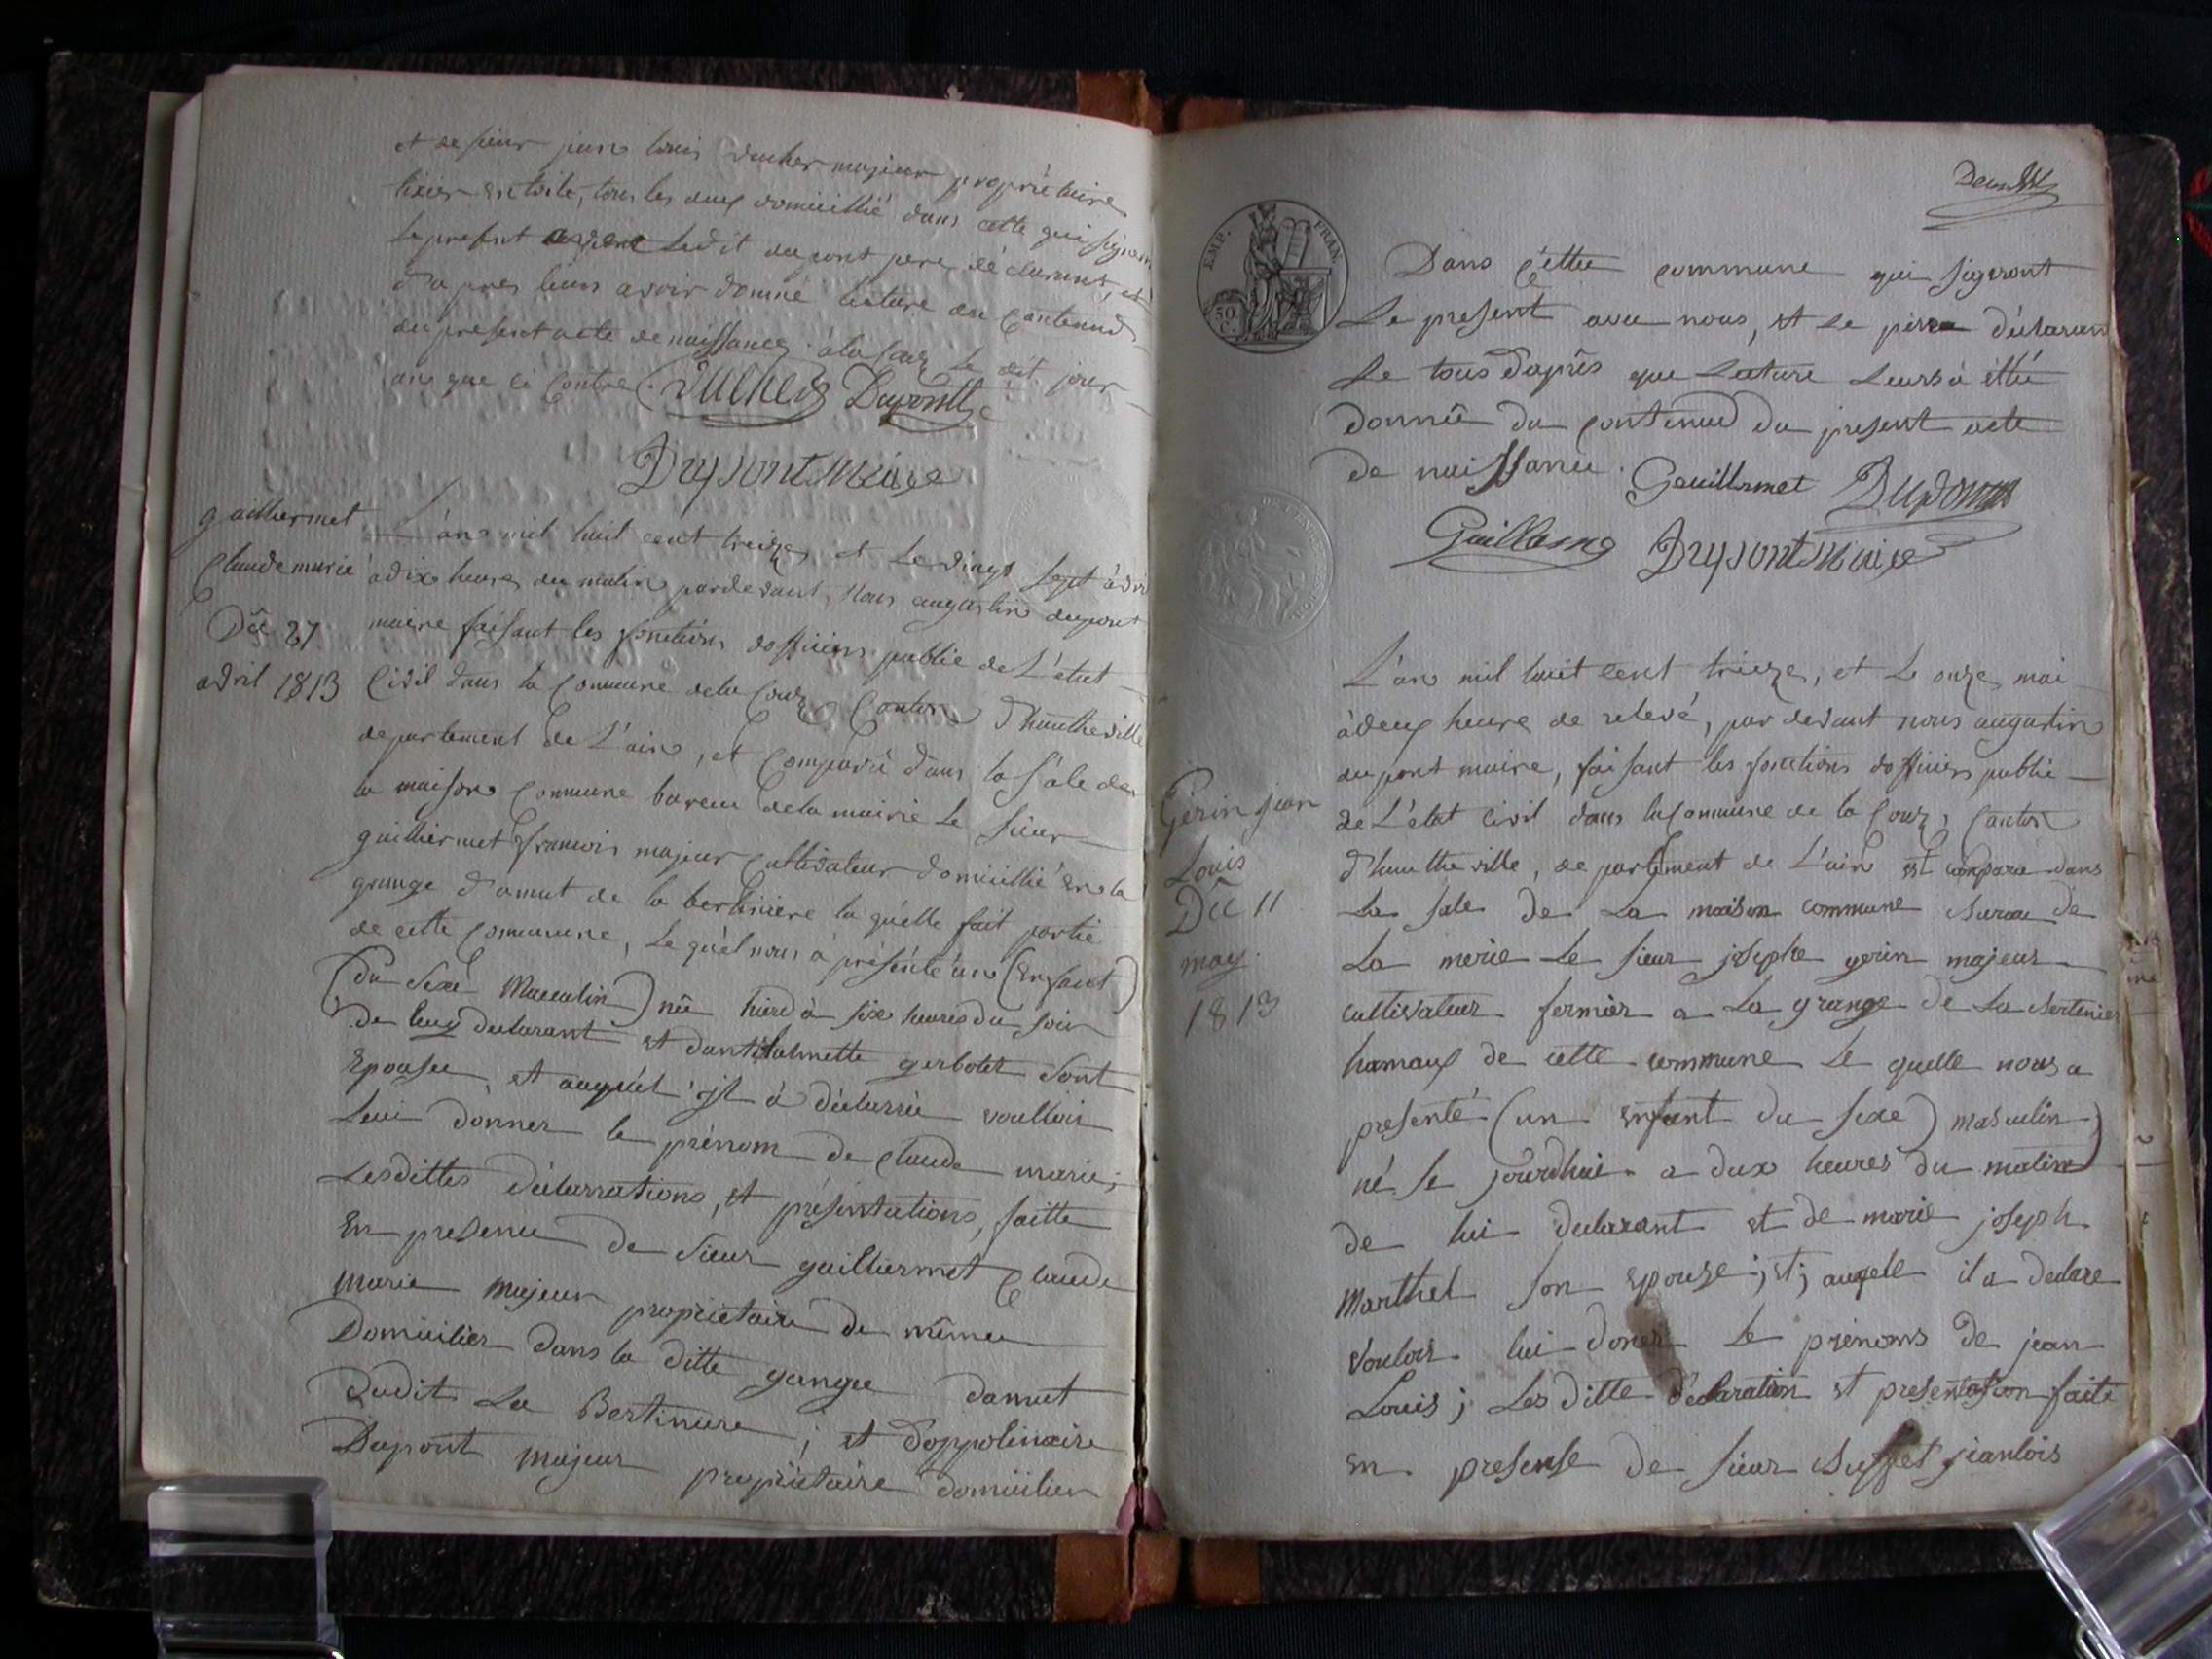 et de sieur jean louis ducher majeur propriétaire
tixier en toile, tous les deux domicillié dans cette qui signeron
le present ledit dupont pere déclarant, et
d'apres leurs avoir donné lecture du contenud
du present acte de naissance à la Couz le dit jour
an que ci contre. Ducher Dupont
Dupont Maire
guilliermet
Claude marie
Dûe 27
avril 1813
L'an mil huit cent treize, et le vingt sept avri
à dix heures du matin pardevant Nous augustin dupont
maire faisant les fonctions d'officiers public de L'état
Civil dans la Commune de la Couz Canton d'hautheville
departement de L'ain, et comparû dans la sale de
la maison Commune bureau de la mairie Le sieur
guilliermet francois majeur Cultivateur domicillié en la
grange d'amut de la bertiniere la quelle fait partie
de cette Commune, Le quel nous à présenté un (Enfant)
(du sexé Masculin) née hierd à six heures du soir
de luy declarant et gerbolet sont
Epouse, et auquel il à déclarrée voulloir
Leui donner le prénom de claude marie;
Lesdittes déclarrations, et présentations, faitte
En presence de sieur guilliermet Claude
Marie majeur propriétaire de même
Domicilier dans la ditte gange damut
dudit La Bertinure; et d'appolinaire
Dupont majeur propriétaire domicilier
EMP. FRAN.
50 C.
Dans cettee commune qui signeront
Le present avec nous, et le père déclaran
Le tous d'après que Lecture Leurs à ettée
donnée du contenud du present acte
de naissance. Geuillermet Dupont
Guillerme Dupont Maire
Gerin jean
Louis
Dûe 11
may.
1813
L'an mil huit cent trieze, et Le onze mai
à deux heure de relevé, par devant nous augustin
dupont maire, faisant les fonctions d'officiers public
de L'état Civil dans la Commune de la Couz, Canton
d'hautheville, departement de L'ain est compara dans
La sale de La maison commune burau de
La merie Le sieur josephe gerin majeur
cultivateur fermier a La grange de La bertinier
hamaux de cette commune Le quelle nous a
presenté (un enfant du sexe) masculin)
né le jourdhui a deux heures du matin
de lui declarant et de marie joseph
Marthel son epouze; et; auqele il a declare
vouloir lui doner Le prénoms de jean
Louis; Les ditte déclaration et presentation faite
en presense de sieur buffet jeanlois